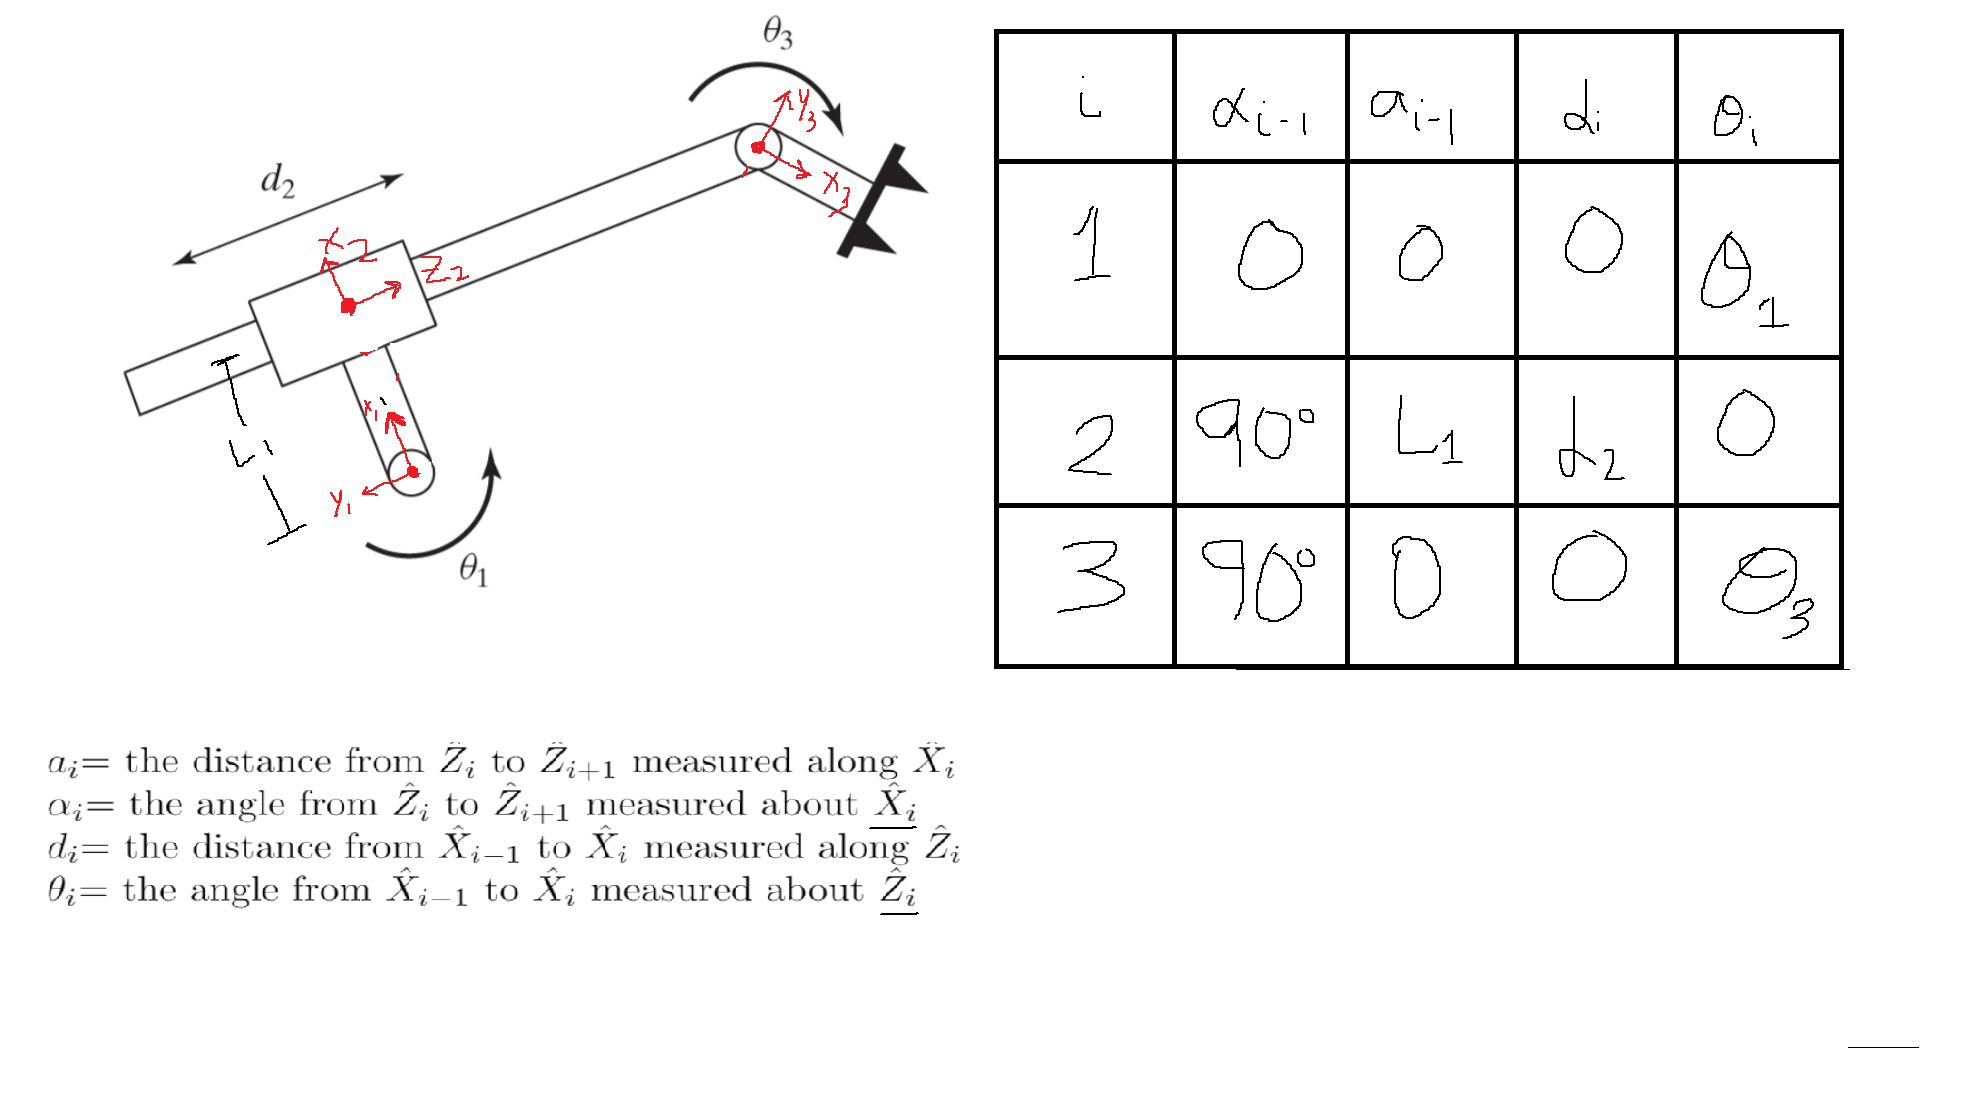 θ3
y3
x3
d2
x2
z2
L1
x1
y1
θ1
i αi-1 ai-1 di θi
1 0 0 0 θ1
2 90° L1 d2 0
3 90° 0 0 θ3
ai= the distance from Ẑi to Ẑi+1 measured along X̂i
αi= the angle from Ẑi to Ẑi+1 measured about X̂i
di= the distance from X̂i−1 to X̂i measured along Ẑi
θi= the angle from X̂i−1 to X̂i measured about Ẑi